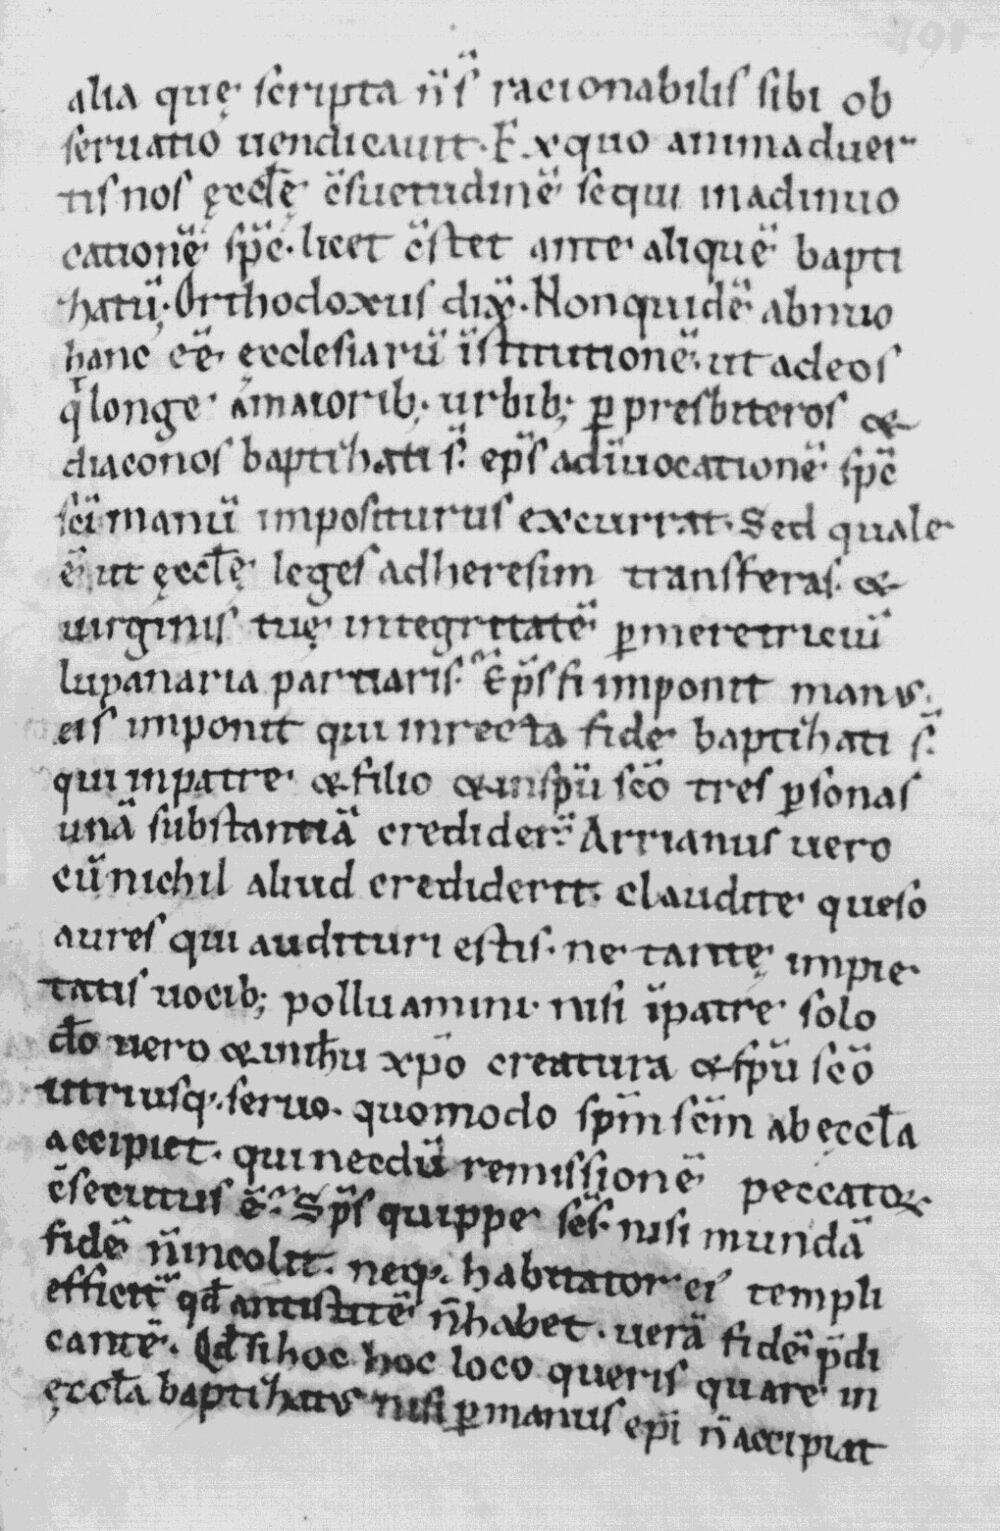 alia quę scripta n̄ s̄ racionabilis sibi ob
seruatio uendicauit. Ex quo animaduer
tis nos ęccl̄ę c̄suetudinē sequi in ad inuo
cationē sp̄c. licet c̄stet ante aliquē bapti
zatū. Orthodoxus dix̄. Non quidē abnuo
hanc eē ecclesiarū īstitutionē. ut ad eos
q̄ longe a maiorib; urbib; ꝑ presbiteros &
diaconos baptizati s̄. ep̄s ad īuocationē sp̄c
sc̄i manū impositurus excurrat. Sed quale
ē ut ęccl̄ę leges ad heresim transferas. &
uirginis tuę integritatē ꝑ meretriciū
lupanaria partiaris. Ep̄s si imponit manus.
eis imponit qui in recta fide baptizati s̄.
qui in patre & filio & in sp̄u sc̄o tres ꝑsonas
unā substantiā credider̄. Arrianus uero
cū nichil aliud crediderit. claudite queso
aures qui audituri estis. ne tantę impie
tatis uocib; polluamini. nisi ī patre solo
d̄o uero & in ih̄u xp̄o creatura & sp̄u sc̄o
utriusq. seruo. quomodo sp̄m sc̄m ab ęccl̄a
accipiet. qui necdū remissionē peccatoꝝ
c̄secutus ē. Sp̄s quippe sc̄s. nisi mundā
fidē n̄ incolit. neq. habitator ei templi
efficit̄ qd̄ antistitē n̄ habet. uerā fidē p̄di
cantē. Qd̄ si hoc hoc loco queris quare in
ęccl̄a baptizatus nisi ꝑ manus ep̄i n̄ accipiat